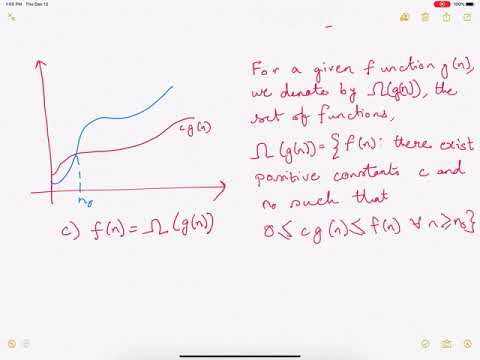 1:05 PM Thu Dec 12
100%
cg(n)
n₀
c) f(n) = Ω(g(n))
For a given function g(n),
we denote by Ω(g(n)), the
set of functions,
Ω(g(n)) = { f(n): there exist
positive constants c and
no such that
0 ≤ cg(n) ≤ f(n) ∀ n ≥ n₀}